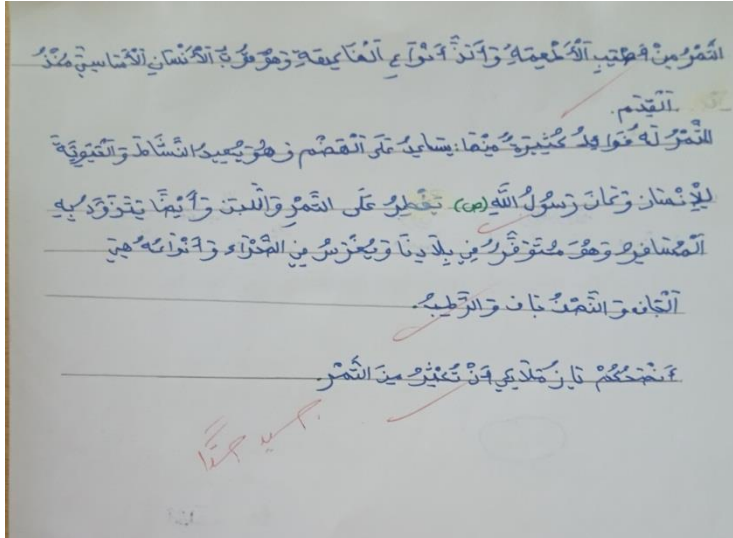 التَّمْرُ مِنْ أَطْيَبِ الْأَطْعِمَةِ وَ أَلَذِّ أَنْوَاعِ الْفَاكِهَةِ وَهُوَ قُوتُ الْأَنْسَانِ الْأَسَاسِيِّ مُنْذُ
الْقِدَم.
للتَّمْرُ لَهُ فَوَائِدُ كَثِيرَةٌ مِنْهَا: يُسَاعِدُ عَلَى الْهَضْمِ فَهُوَ يُعِيدُ النَّشَاطَ وَ الْحَيَوِيَّةَ
لِلْإِنْسَانِ وَ كَانَ رَسُولُ اللَّهِ (ص) يَفْطِرُ عَلَى التَّمْرِ وَ اللَّبَنِ وَ أَيْضًا يَتَزَوَّدُ بِهِ
الْمُسَافِرُ وَ هُوَ مُتَوَفِّرٌ فِي بِلَادِنَا وَ يُغْرَسُ فِي الصَّحْرَاء وَ أَنْوَاعُهُ هِيَ
الْجَاف وَ النِّصْفُ جَاف وَ الرَّطِبُ.
أَنْصَحُكُمْ يَا زُمَلَائِي أَنْ تُكْثِرُ مِنَ التَّمْر.
جيد جدًّا